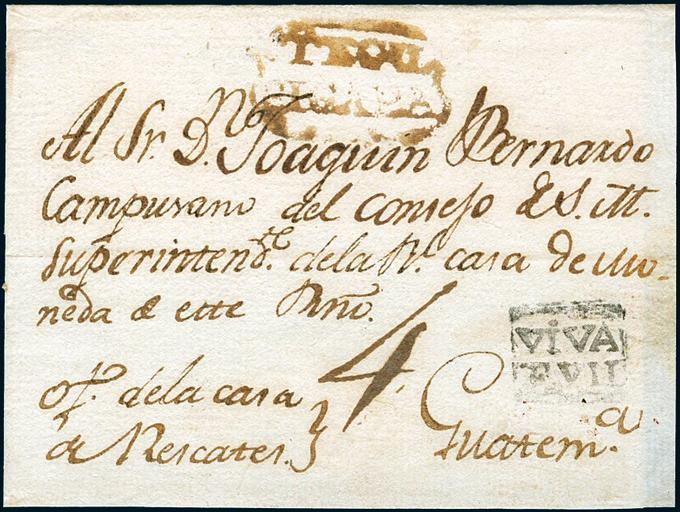 TEGU
CIGALPA
Al Sr. Dn. Joaquin Bernardo
Campusano del Consejo de S. M.
Superintendte. dela Rl. casa de Mo-
neda de este Rno.
4
VIVA
F. VII
ofo. dela casa
de Rescates.
Guatema.